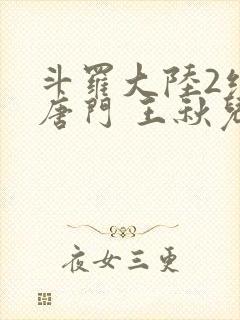 斗羅大陸2絕
唐門 王秋兒
夜女三更